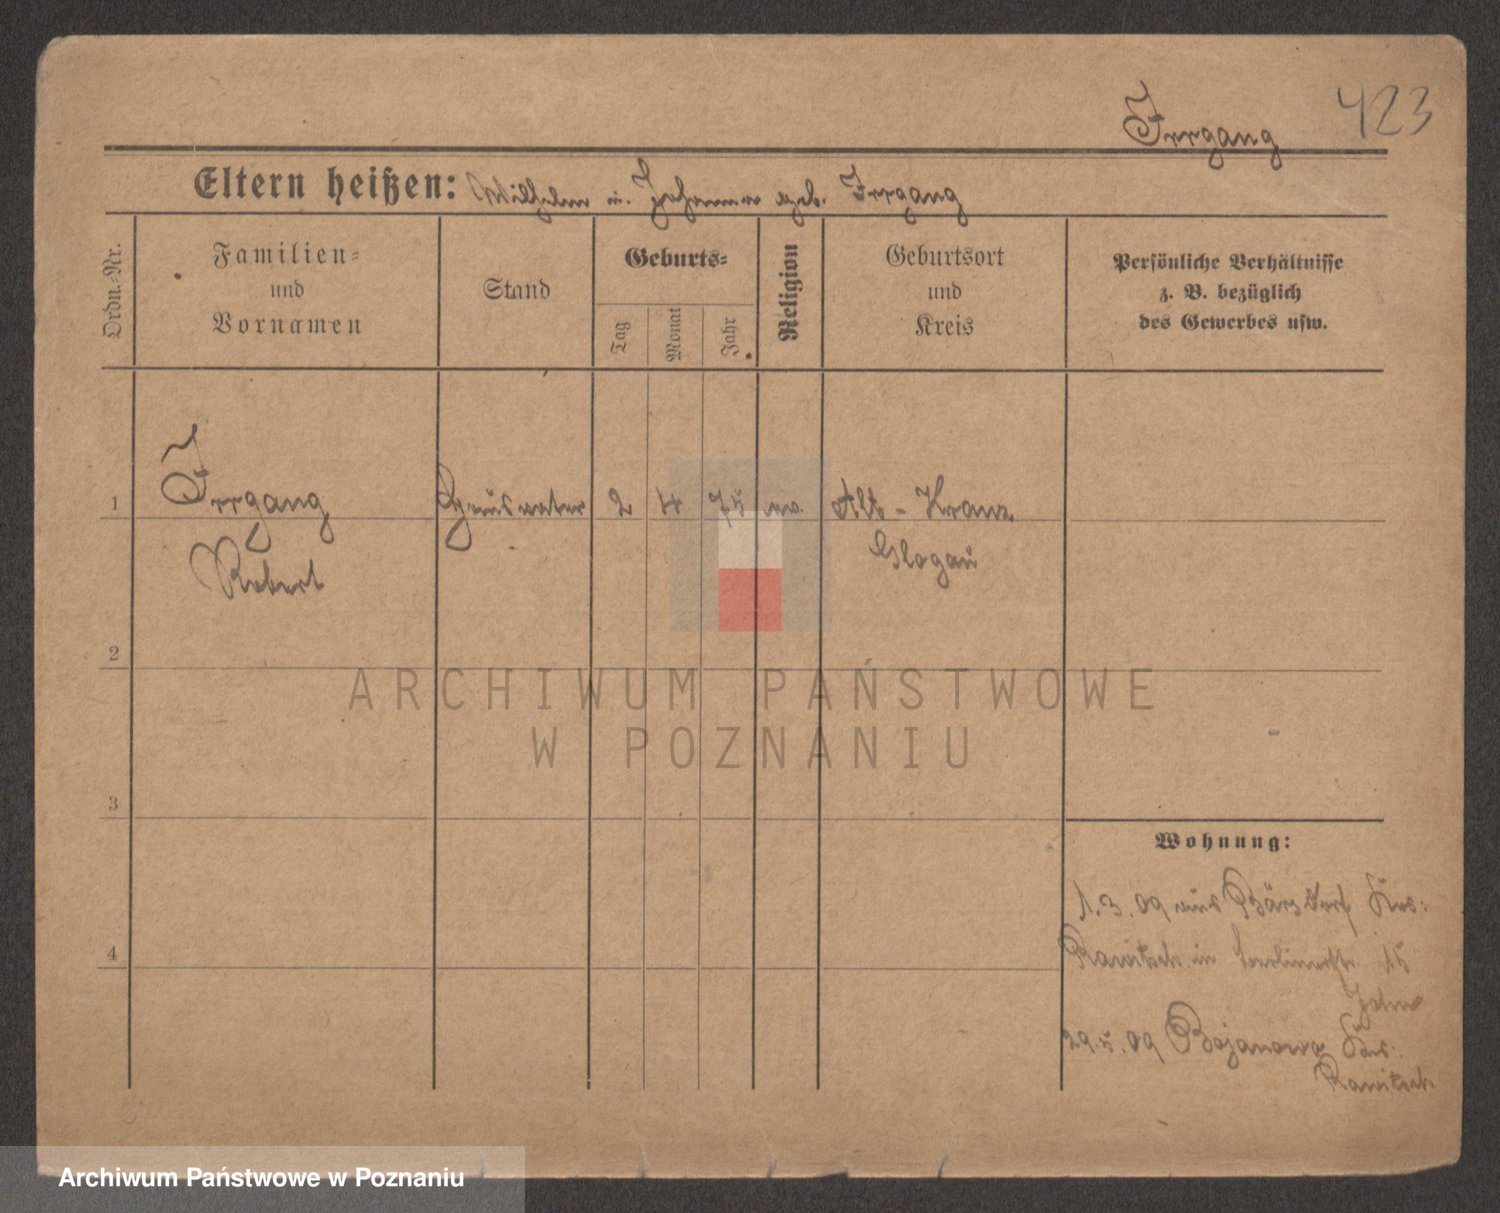 Irrgang 423
Eltern heißen: Wilhelm u. Johanna geb. Irrgang
Ordn.-Nr.
Familien-
und
Vornamen
Stand
Geburts-
Tag
Monat
Jahr
Religion
Geburtsort
und
Kreis
Persönliche Verhältnisse
z. B. bezüglich
des Gewerbes usw.
1 Irrgang 2 4 75 ev. Alt-Kranz
Robert Glogau
2
ARCHIWUM PAŃSTWOWE
W POZNANIU
3
Wohnung:
1.3.09 aus Bärsdorf Krs:
4
Rawitsch in Berlinerstr. 15
29.5.09 Bojanowo Krs.
Rawitsch
Archiwum Państwowe w Poznaniu